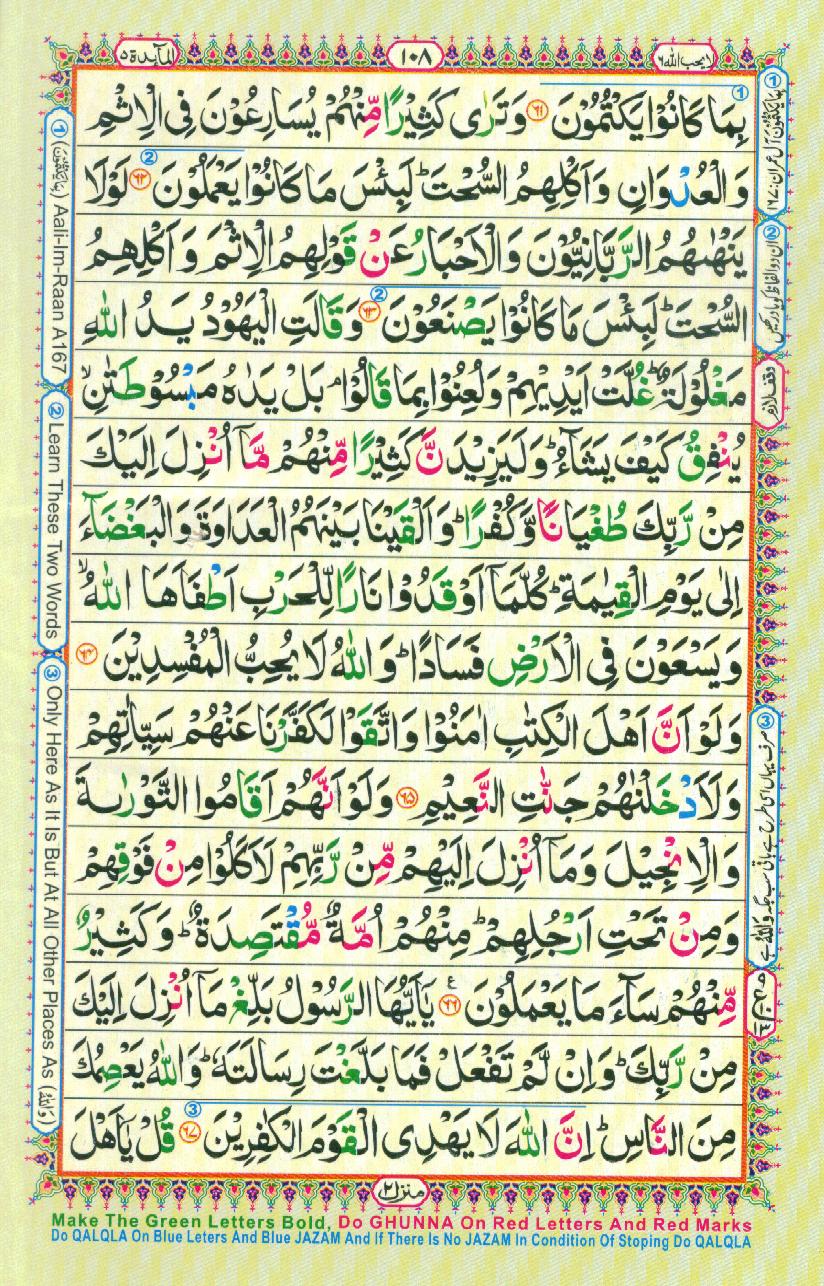 المآئدة ۵
۱۰۸
لا يحب الله ۶
بِمَا كَانُوْا يَكْتُمُوْنَ ﴿۶۱﴾ وَتَرٰى كَثِيْرًا مِّنْهُمْ يُسَارِعُوْنَ فِى الْاِثْمِ
وَالْعُدْوَانِ وَاَكْلِهِمُ السُّحْتَ ؕ لَبِئْسَ مَا كَانُوْا يَعْمَلُوْنَ ﴿۶۲﴾ لَوْلَا
يَنْهٰىهُمُ الرَّبَّانِيُّوْنَ وَالْاَحْبَارُ عَنْ قَوْلِهِمُ الْاِثْمَ وَاَكْلِهِمُ
السُّحْتَ ؕ لَبِئْسَ مَا كَانُوْا يَصْنَعُوْنَ ﴿۶۳﴾ وَقَالَتِ الْيَهُوْدُ يَدُ اللّٰهِ
مَغْلُوْلَةٌ ؕ غُلَّتْ اَيْدِيْهِمْ وَلُعِنُوْا بِمَا قَالُوْا ۘ بَلْ يَدٰهُ مَبْسُوْطَتٰنِ ۙ
يُنْفِقُ كَيْفَ يَشَآءُ ؕ وَلَيَزِيْدَنَّ كَثِيْرًا مِّنْهُمْ مَّاۤ اُنْزِلَ اِلَيْكَ
مِنْ رَّبِّكَ طُغْيَانًا وَّكُفْرًا ؕ وَاَلْقَيْنَا بَيْنَهُمُ الْعَدَاوَةَ وَالْبَغْضَآءَ
اِلٰى يَوْمِ الْقِيٰمَةِ ؕ كُلَّمَاۤ اَوْقَدُوْا نَارًا لِّلْحَرْبِ اَطْفَاَهَا اللّٰهُ ۙ
وَيَسْعَوْنَ فِى الْاَرْضِ فَسَادًا ؕ وَاللّٰهُ لَا يُحِبُّ الْمُفْسِدِيْنَ ﴿۶۴﴾
وَلَوْ اَنَّ اَهْلَ الْكِتٰبِ اٰمَنُوْا وَاتَّقَوْا لَكَفَّرْنَا عَنْهُمْ سَيِّاٰتِهِمْ
وَلَاَدْخَلْنٰهُمْ جَنّٰتِ النَّعِيْمِ ﴿۶۵﴾ وَلَوْ اَنَّهُمْ اَقَامُوا التَّوْرٰىةَ
وَالْاِنْجِيْلَ وَمَاۤ اُنْزِلَ اِلَيْهِمْ مِّنْ رَّبِّهِمْ لَاَكَلُوْا مِنْ فَوْقِهِمْ
وَمِنْ تَحْتِ اَرْجُلِهِمْ ؕ مِنْهُمْ اُمَّةٌ مُّقْتَصِدَةٌ ؕ وَكَثِيْرٌ
مِّنْهُمْ سَآءَ مَا يَعْمَلُوْنَ ﴿۶۶﴾ ع يٰۤاَيُّهَا الرَّسُوْلُ بَلِّغْ مَاۤ اُنْزِلَ اِلَيْكَ
مِنْ رَّبِّكَ ؕ وَاِنْ لَّمْ تَفْعَلْ فَمَا بَلَّغْتَ رِسَالَتَهٗ ؕ وَاللّٰهُ يَعْصِمُكَ
مِنَ النَّاسِ ؕ اِنَّ اللّٰهَ لَا يَهْدِى الْقَوْمَ الْكٰفِرِيْنَ ﴿۶۷﴾ قُلْ يٰۤاَهْلَ
منزل ۲
① بما يكتمون آل عمران: ۱۶۷
② ان دو الفاظ کو یاد رکھیں
وقف لازم
③ صرف یہاں اسی طرح ہے باقی سب جگہ وَاللّٰهُ ہے
① (بما يكتمون) Aali-Im-Raan A167
② Learn These Two Words
③ Only Here As It Is But At All Other Places As (وَاللّٰهُ)
Make The Green Letters Bold, Do GHUNNA On Red Letters And Red Marks
Do QALQLA On Blue Leters And Blue JAZAM And If There Is No JAZAM In Condition Of Stoping Do QALQLA